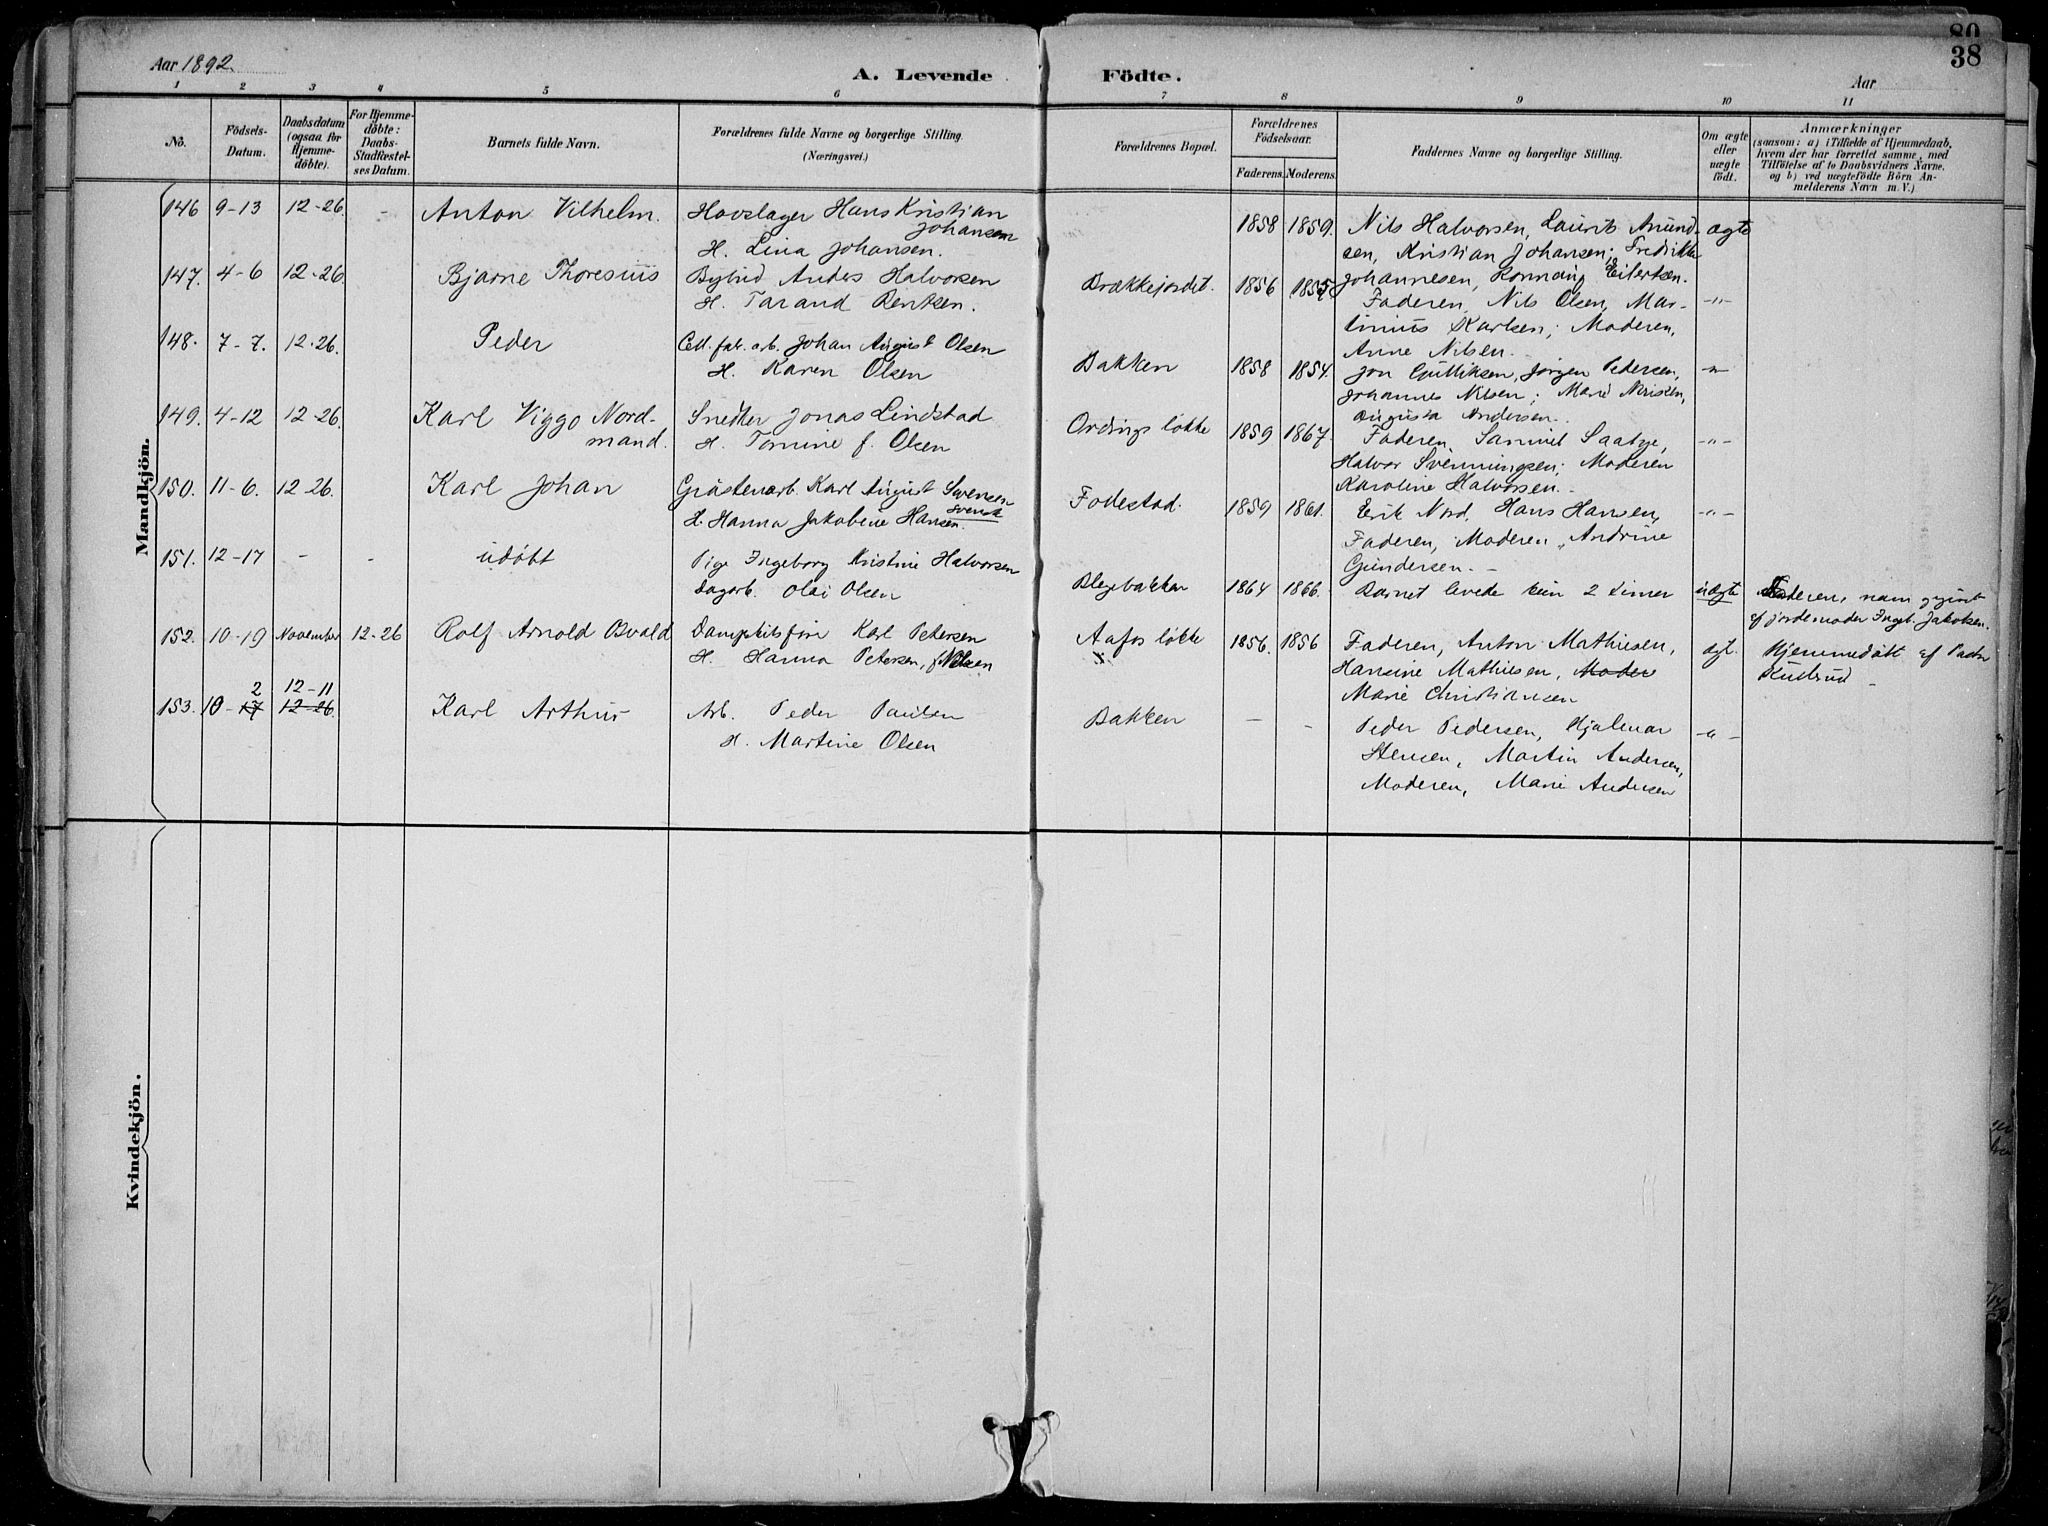 80
38
Aar 1892
A. Levende Födte.
Aar
1 2 3 4 5 6 7 8 9 10 11
No.
Födsels-Datum.
Daabsdatum (ogsaa for Hjemmedöbte).
For Hjemmedöbte: Daabs-Stadfæstelses Datum.
Barnets fulde Navn.
Forældrenes fulde Navne og borgerlige Stilling.
(Næringsvei.)
Forældrenes Bopæl.
Forældrenes Födselsaar.
Faderens. Moderens.
Faddernes Navne og borgerlige Stilling.
Om ægte eller uægte födt.
Anmærkninger
(saasom: a) i Tilfælde af Hjemmedaab,
hvem der har forrettet samme, med
Tilföielse af to Daabsvidners Navne,
og b) ved uægtefödte Börn An-
melderens Navn m. V.)
Mandkjön.
146 9-13 12-26 - Anton Vilhelm. Hovslager Hans Kristian Johansen
H. Lina Johansen.
1858 1859. Nils Halvorsen, Laurits Amund- ægte
sen, Kristian Johansen; Fredrikke
Johannesen, Ronnaug Eilertsen.
147. 4-6 12-26 Bjarne Thoresius Bybud Anders Halvorsen
H. Tarand Bentsen.
Brækkejordet. 1856 1855 Faderen, Nils Olsen, Mar- -"-
tinius Karlsen; Moderen,
Anne Nilsen.
148. 7-7. 12-26. Peder Cell. fab. arb. Johan August Olsen
H. Karen Olsen
Bakken 1858 1854. Jon Gulliksen, Jørgen Pedersen, -"-
Johannes Nilsen; Marie
Augusta Andersen.
149. 4-12 12-26. Karl Viggo Nord-
mand. Snedker Jonas Lindstad
H. Tomine f. Olsen
Ordings løkke 1859 1867. Faderen, Samuel Saatve, -"-
Halvor Svenningsen; Moderen
Karoline Halvorsen.
150. 11-6. 12-26. Karl Johan Gråstenarb. Karl August Svensen
svensk
H. Hanna Jakobine Hansen.
Follestad. 1859 1861. Erik Nord, Hans Hansen, -"-
Faderen, Moderen, Andrine
Gundersen.
151. 12-17 - - udøbt Pige Ingeborg Kristine Halvorsen
Dagarb. Olai Olsen
Blegebakken 1864 1866. Barnet levede kun 2 timer uægte Faderen, navn opgivet
af jordemoder Ingb. Jakobsen.
152. 10-19 November 12-26 Rolf Arnold Osvald Dampskibsfører Karl Petersen
H. Hanna Petersen, f. Nilsen
Aafos løkke 1856. 1856 Faderen, Anton Mathiesen, ægt. Hjemmedøbt af Pastor
Hansine Mathiesen, Moder
Marie Christiansen
153. 10-17 2 12-26 12-11 Karl Arthur Arb. Peder Paulsen
H. Martine Olsen
Bakken - - Peder Pedersen, Hjalmar -"-
Stensen, Martin Andersen,
Moderen, Marie Andersen
Kvindekjön.